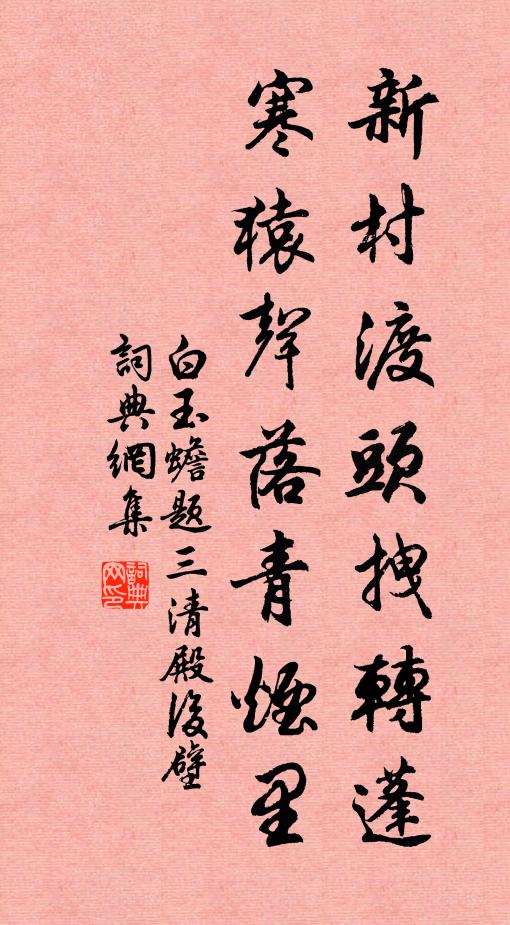 新村渡頭拽轉蓬
寒猿聲落青煙里
白玉蟾題三清殿後壁
詞典網集
詞典網印